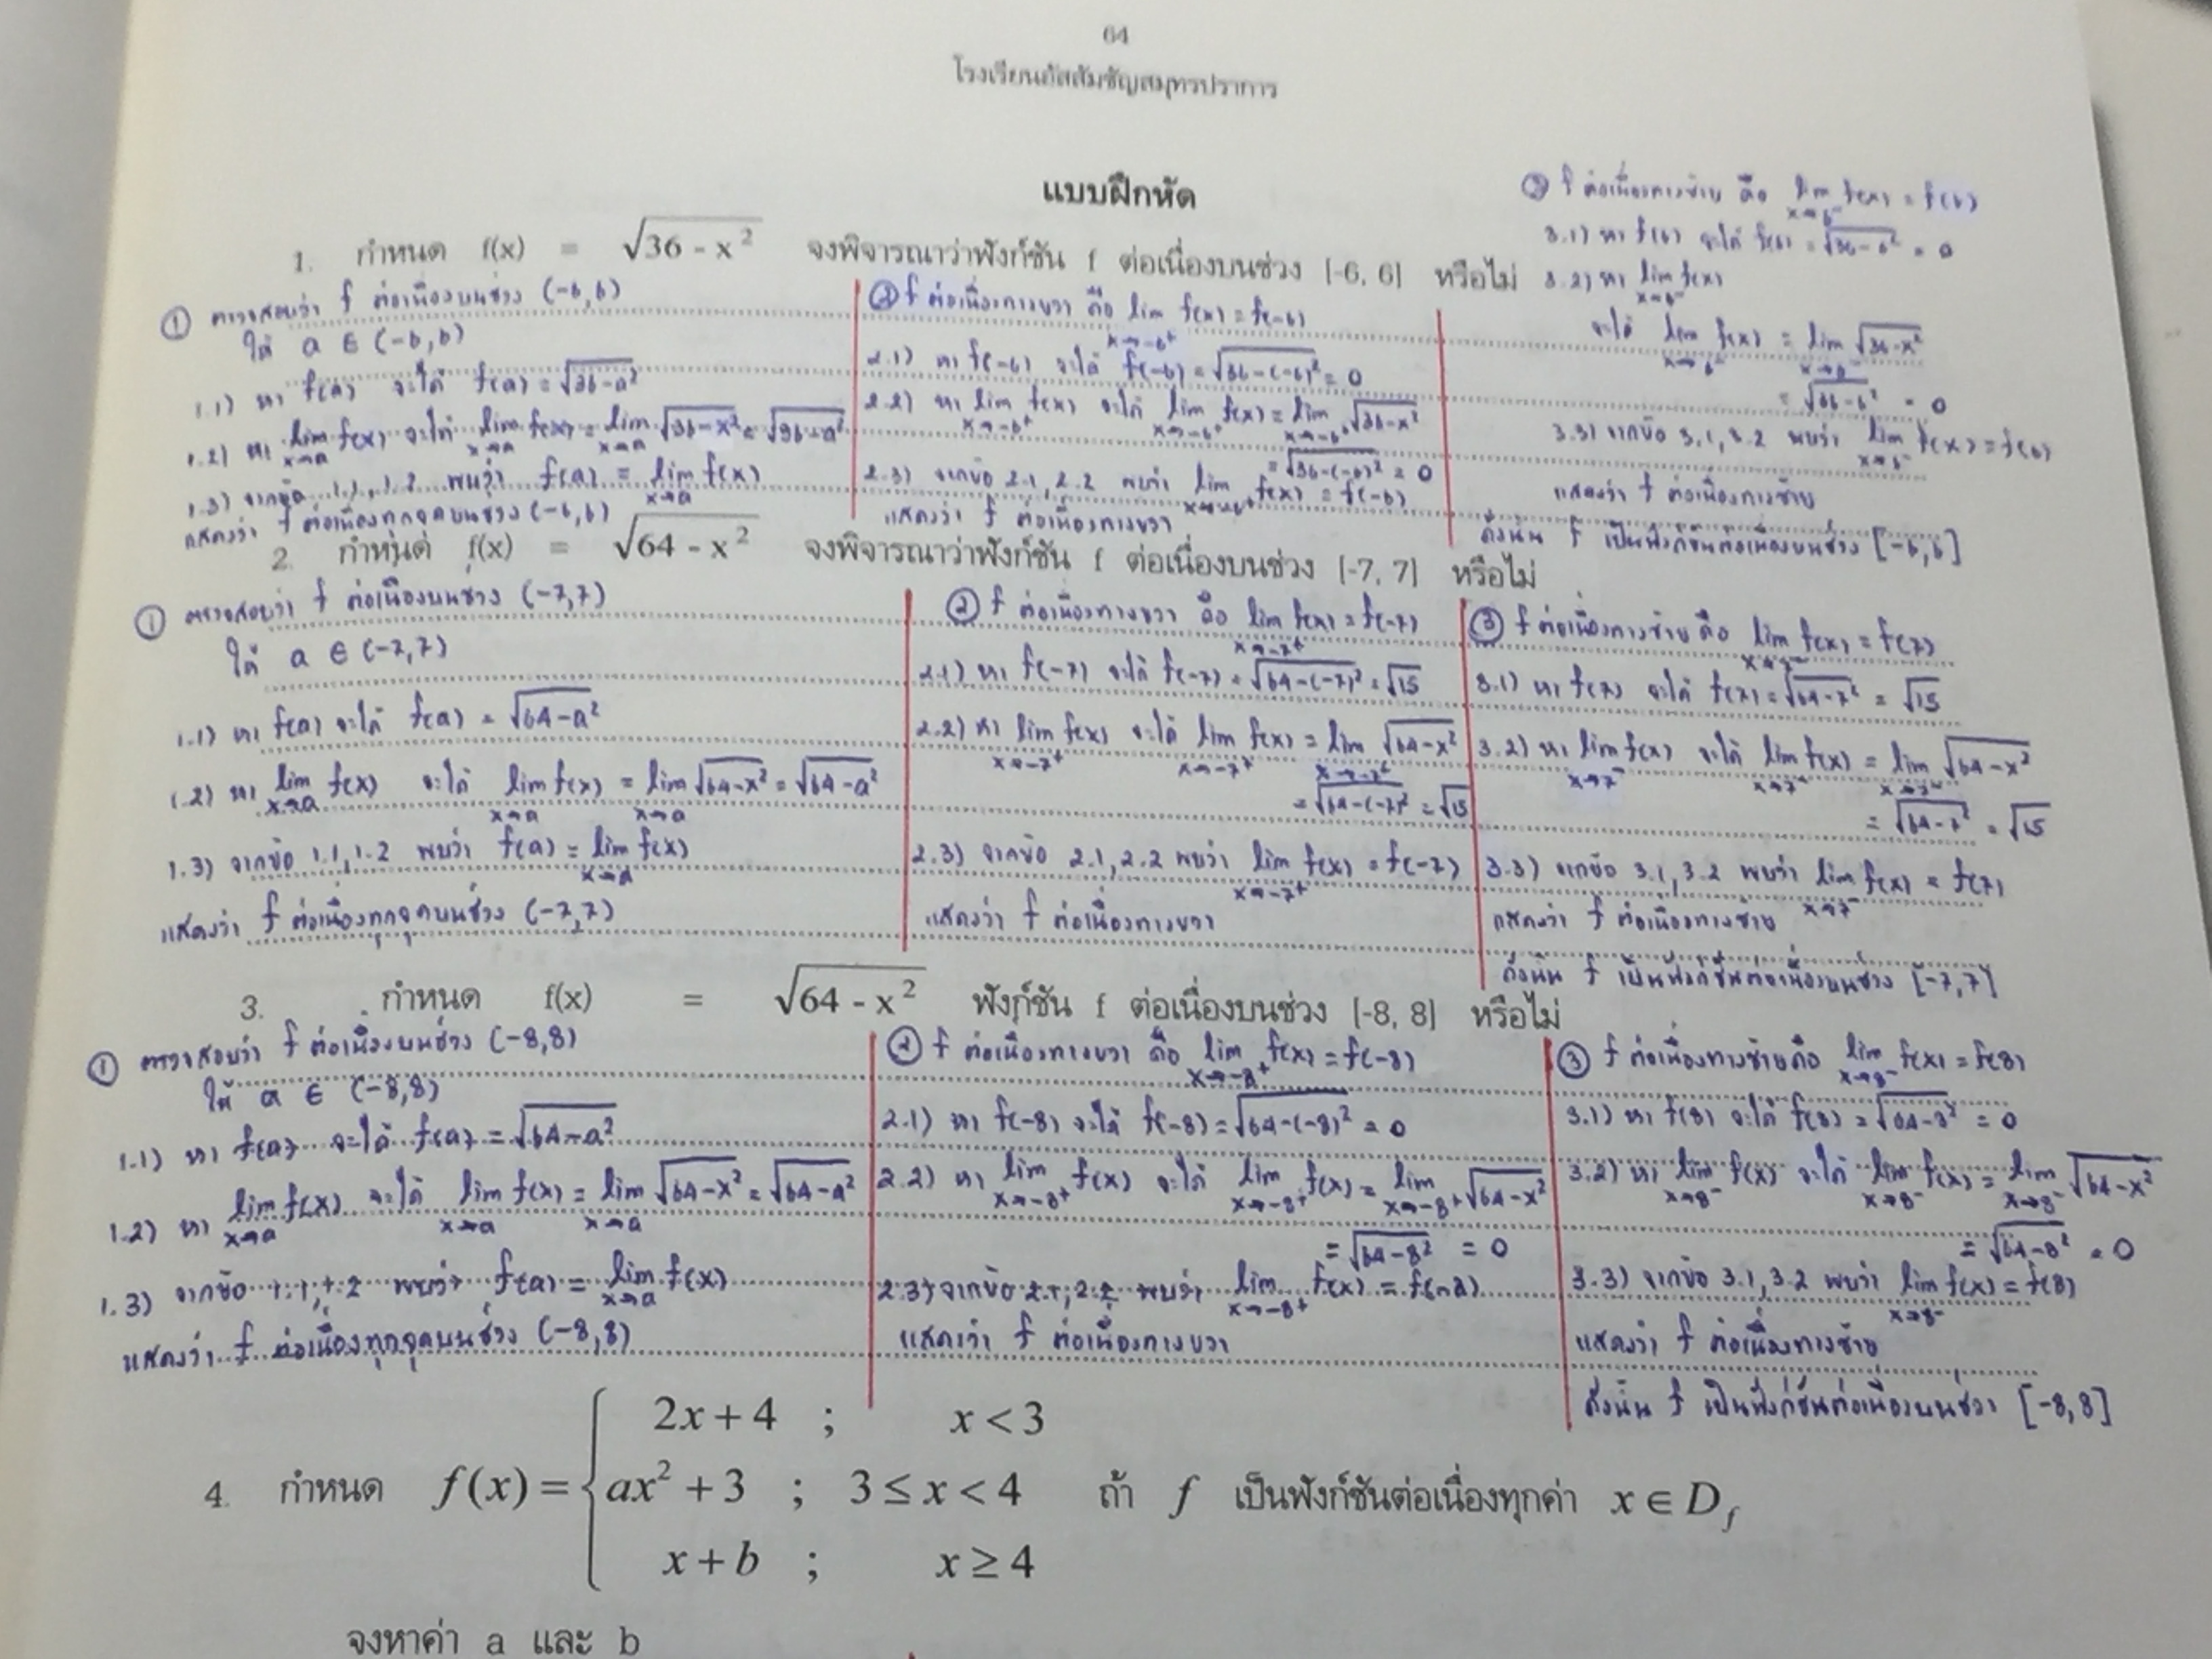 64
โรงเรียนอัสสัมชัญสมุทรปราการ
แบบฝึกหัด
1. กำหนด f(x) = √36 - x² จงพิจารณาว่าฟังก์ชัน f ต่อเนื่องบนช่วง [-6, 6] หรือไม่
① ตรวจสอบว่า f ต่อเนื่องบนช่วง (-6,6)
ให้ a ∈ (-6,6)
1.1) หา f(a) จะได้ f(a) = √36-a²
1.2) หา lim x→a f(x) จะได้ lim x→a f(x) = lim x→a √36-x² = √36-a²
1.3) จากข้อ 1.1, 1.2 พบว่า f(a) = lim x→a f(x)
แสดงว่า f ต่อเนื่องทุกจุดบนช่วง (-6,6)
② f ต่อเนื่องทางขวา คือ lim x→-6⁺ f(x) = f(-6)
2.1) หา f(-6) จะได้ f(-6) = √36-(-6)² = 0
2.2) หา lim x→-6⁺ f(x) จะได้ lim x→-6⁺ f(x) = lim x→-6⁺ √36-x²
= √36-(-6)² = 0
2.3) จากข้อ 2.1, 2.2 พบว่า lim x→-6⁺ f(x) = f(-6)
แสดงว่า f ต่อเนื่องทางขวา
③ f ต่อเนื่องทางซ้าย คือ lim x→6⁻ f(x) = f(6)
3.1) หา f(6) จะได้ f(6) = √36-6² = 0
3.2) หา lim x→6⁻ f(x)
จะได้ lim x→6⁻ f(x) = lim x→6⁻ √36-x²
= √36-6² = 0
3.3) จากข้อ 3.1, 3.2 พบว่า lim x→6⁻ f(x) = f(6)
แสดงว่า f ต่อเนื่องทางซ้าย
ดังนั้น f เป็นฟังก์ชันต่อเนื่องบนช่วง [-6,6]
2. กำหนด f(x) = √64 - x² จงพิจารณาว่าฟังก์ชัน f ต่อเนื่องบนช่วง [-7, 7] หรือไม่
① ตรวจสอบว่า f ต่อเนื่องบนช่วง (-7,7)
ให้ a ∈ (-7,7)
1.1) หา f(a) จะได้ f(a) = √64-a²
1.2) หา lim x→a f(x) จะได้ lim x→a f(x) = lim x→a √64-x² = √64-a²
1.3) จากข้อ 1.1, 1.2 พบว่า f(a) = lim x→a f(x)
แสดงว่า f ต่อเนื่องทุกจุดบนช่วง (-7,7)
② f ต่อเนื่องทางขวา คือ lim x→-7⁺ f(x) = f(-7)
2.1) หา f(-7) จะได้ f(-7) = √64-(-7)² = √15
2.2) หา lim x→-7⁺ f(x) จะได้ lim x→-7⁺ f(x) = lim x→-7⁺ √64-x²
= √64-(-7)² = √15
2.3) จากข้อ 2.1, 2.2 พบว่า lim x→-7⁺ f(x) = f(-7)
แสดงว่า f ต่อเนื่องทางขวา
③ f ต่อเนื่องทางซ้าย คือ lim x→7⁻ f(x) = f(7)
3.1) หา f(7) จะได้ f(7) = √64-7² = √15
3.2) หา lim x→7⁻ f(x) จะได้ lim x→7⁻ f(x) = lim x→7⁻ √64-x²
= √64-7² = √15
3.3) จากข้อ 3.1, 3.2 พบว่า lim x→7⁻ f(x) = f(7)
แสดงว่า f ต่อเนื่องทางซ้าย
ดังนั้น f เป็นฟังก์ชันต่อเนื่องบนช่วง [-7,7]
3. กำหนด f(x) = √64 - x² ฟังก์ชัน f ต่อเนื่องบนช่วง [-8, 8] หรือไม่
① ตรวจสอบว่า f ต่อเนื่องบนช่วง (-8,8)
ให้ a ∈ (-8,8)
1.1) หา f(a) จะได้ f(a) = √64-a²
1.2) หา lim x→a f(x) จะได้ lim x→a f(x) = lim x→a √64-x² = √64-a²
1.3) จากข้อ 1.1, 1.2 พบว่า f(a) = lim x→a f(x)
แสดงว่า f ต่อเนื่องทุกจุดบนช่วง (-8,8)
② f ต่อเนื่องทางขวา คือ lim x→-8⁺ f(x) = f(-8)
2.1) หา f(-8) จะได้ f(-8) = √64-(-8)² = 0
2.2) หา lim x→-8⁺ f(x) จะได้ lim x→-8⁺ f(x) = lim x→-8⁺ √64-x²
= √64-8² = 0
2.3) จากข้อ 2.1, 2.2 พบว่า lim x→-8⁺ f(x) = f(-8)
แสดงว่า f ต่อเนื่องทางขวา
③ f ต่อเนื่องทางซ้ายคือ lim x→8⁻ f(x) = f(8)
3.1) หา f(8) จะได้ f(8) = √64-8² = 0
3.2) หา lim x→8⁻ f(x) จะได้ lim x→8⁻ f(x) = lim x→8⁻ √64-x²
= √64-8² = 0
3.3) จากข้อ 3.1, 3.2 พบว่า lim x→8⁻ f(x) = f(8)
แสดงว่า f ต่อเนื่องทางซ้าย
ดังนั้น f เป็นฟังก์ชันต่อเนื่องบนช่วง [-8,8]
2x + 4 ; x < 3
4. กำหนด f(x) = { ax² + 3 ; 3 ≤ x < 4 ถ้า f เป็นฟังก์ชันต่อเนื่องทุกค่า x ∈ D_f
x + b ; x ≥ 4
จงหาค่า a และ b